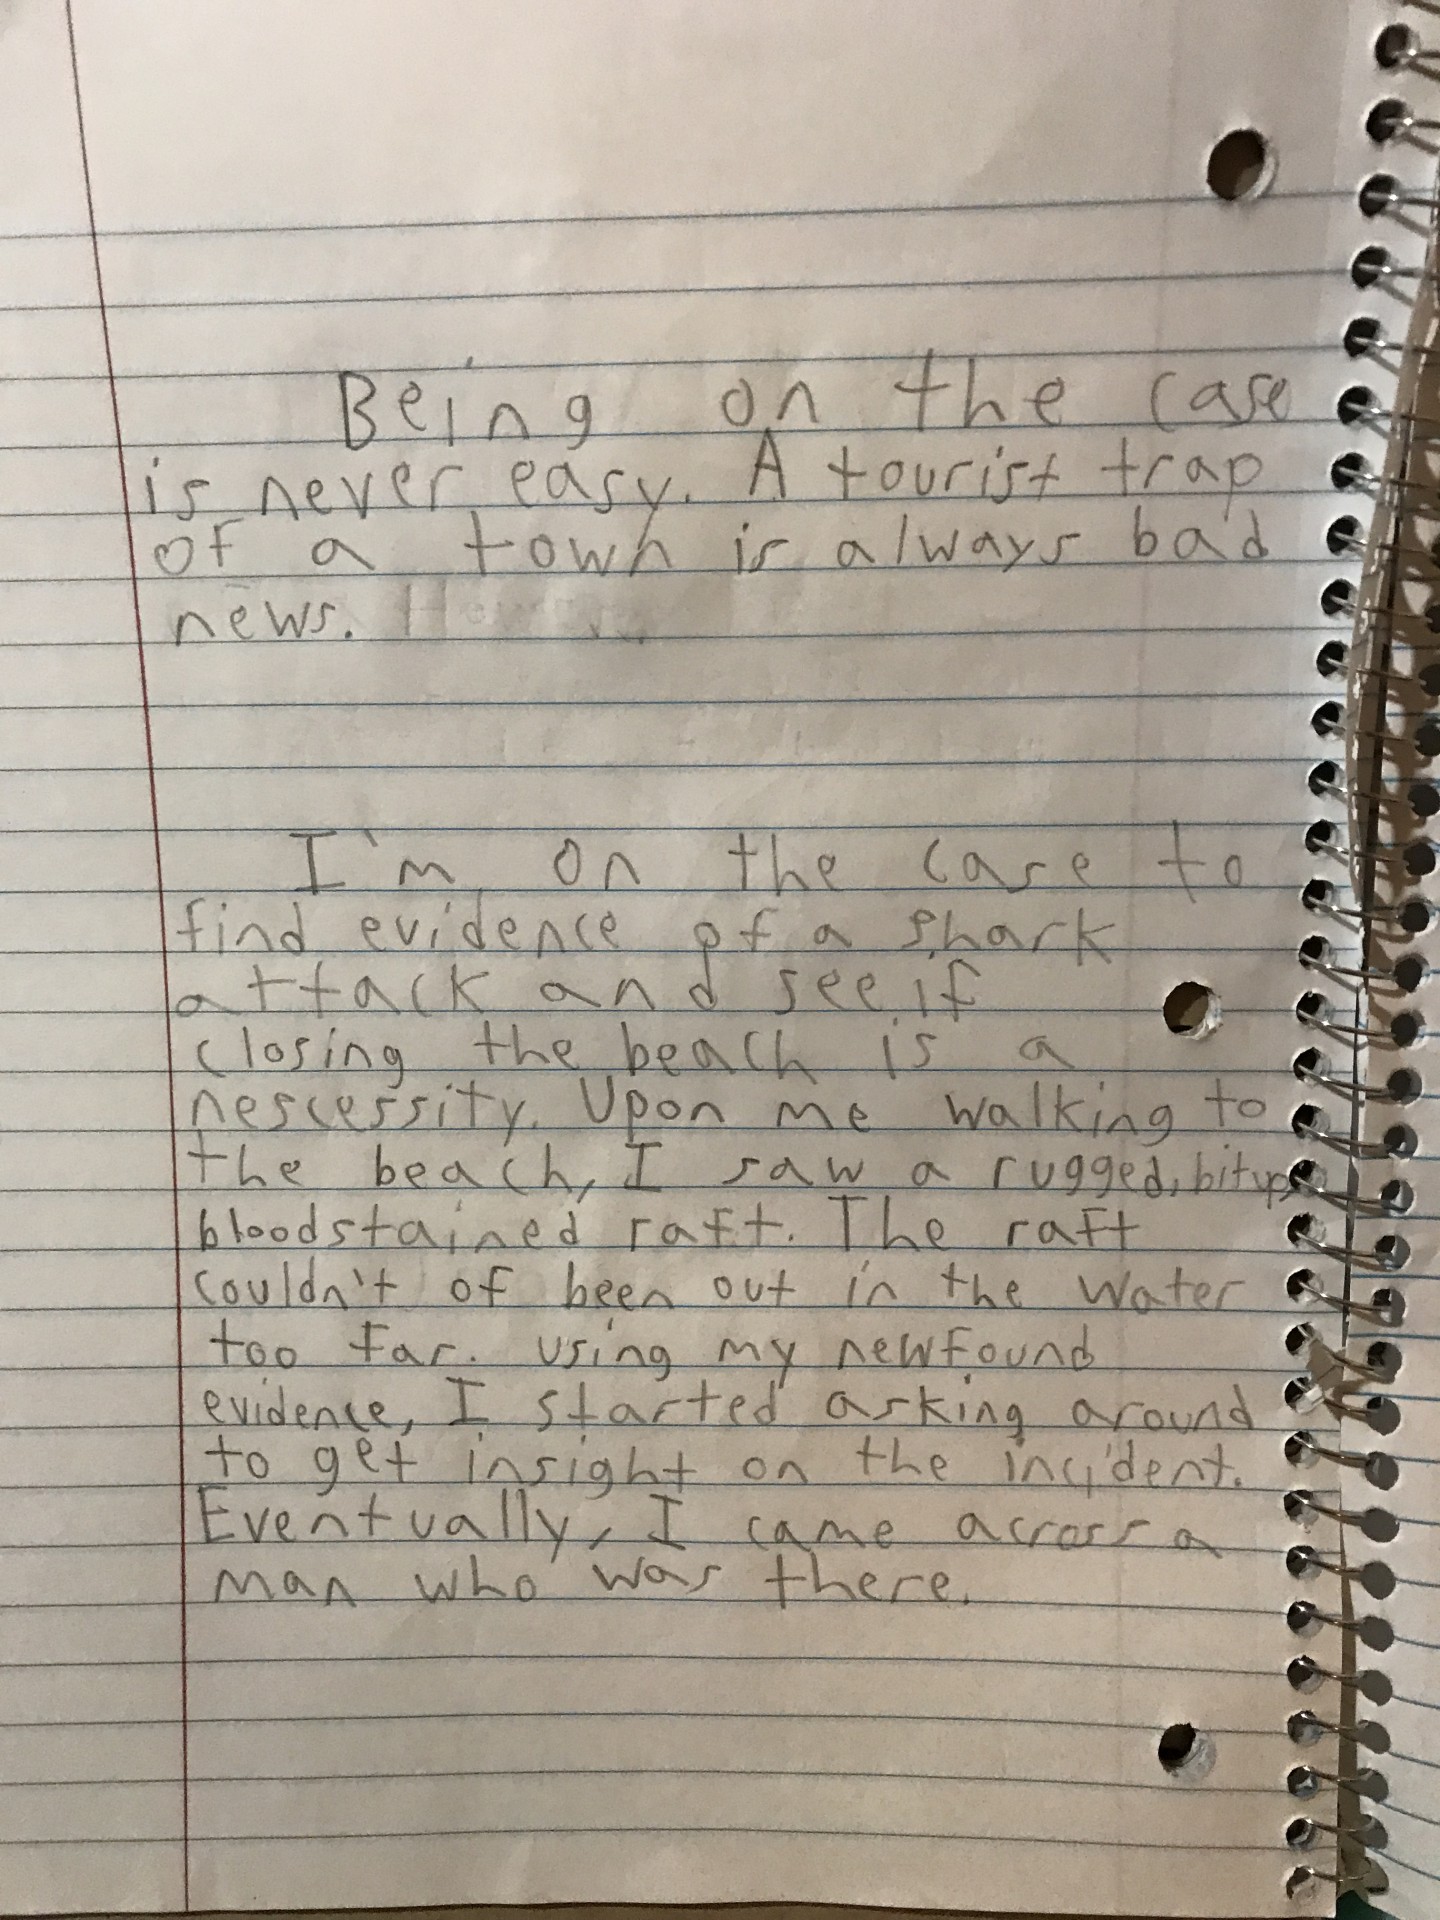 Being on the case
is never easy. A tourist trap
of a town is always bad
news.
I'm on the case to
find evidence of a shark
attack and see if
closing the beach is a
nescessity. Upon me walking to
the beach, I saw a rugged, bitup,
bloodstained raft. The raft
couldn't of been out in the water
too far. Using my newfound
evidence, I started asking around
to get insight on the incident.
Eventually, I came across a
man who was there.